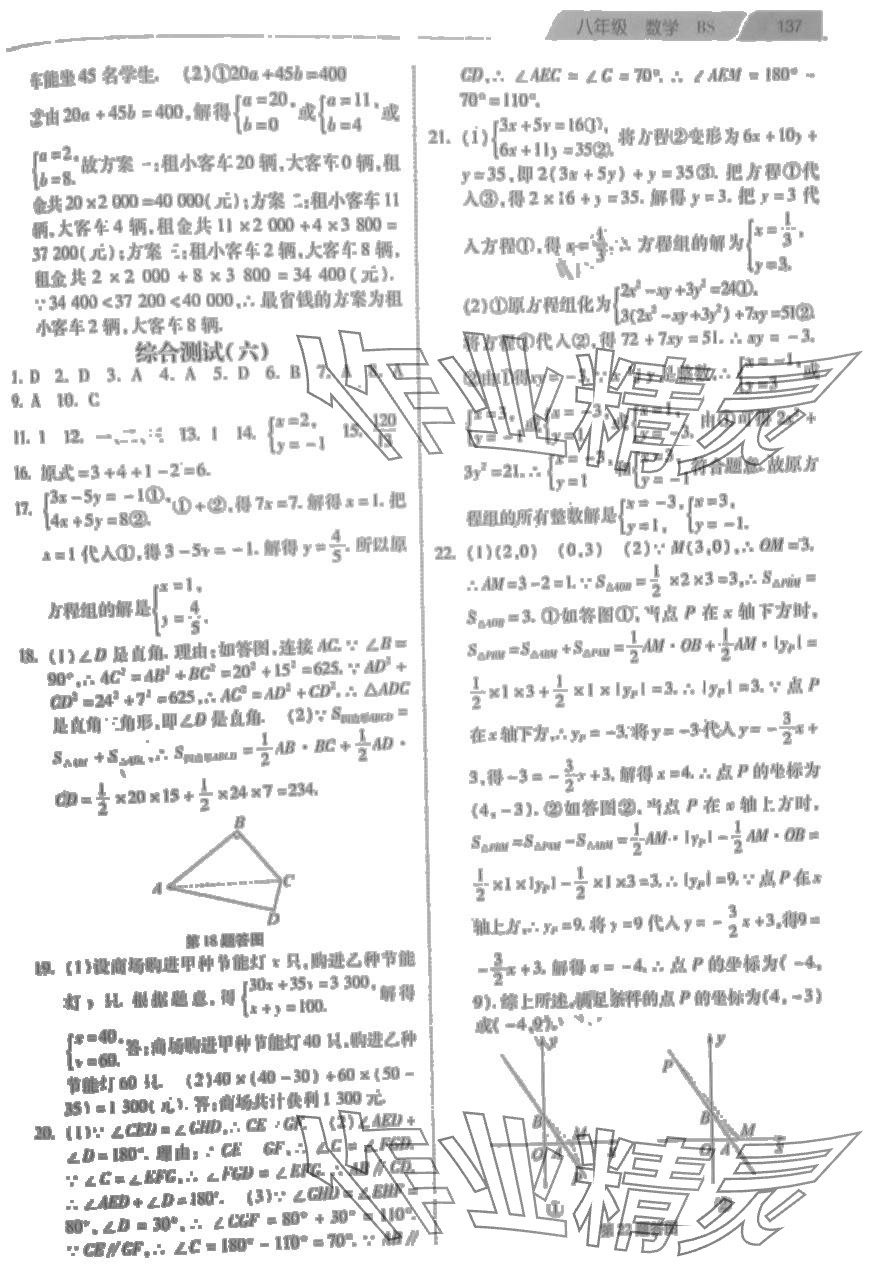 八年级 数学 BS 137
车能坐45 名学生. (2)①20a+45b=400
②由20a+45b=400,解得{a=20, b=0 或{a=11, b=4 或
{a=2, b=8. 故方案一:租小客车20 辆,大客车0 辆,租
金共20×2 000=40 000(元);方案二:租小客车11
辆,大客车4 辆,租金共11×2 000+4×3 800=
37 200(元);方案三:租小客车2 辆,大客车8 辆,
租金共2×2 000+8×3 800=34 400(元).
∵34 400<37 200<40 000,∴最省钱的方案为租
小客车2 辆,大客车8 辆.
综合测试(六)
1. D 2. D 3. A 4. A 5. D 6. B 7. A 8. A
9. A 10. C
11. 1 12. 一、二、 13. 1 14. {x=2, y=-1 15. 120/13
16. 原式=3+4+1-2=6.
17. {3x-5y=-1①, 4x+5y=8②. ①+②,得7x=7. 解得x=1. 把
x=1 代入①,得3-5y=-1. 解得y=4/5. 所以原
方程组的解是{x=1, y=4/5.
18. (1)∠D 是直角. 理由:如答图,连接AC. ∵∠B=
90°,∴AC²=AB²+BC²=20²+15²=625. ∵AD²+
CD²=24²+7²=625,∴AC²=AD²+CD². ∴△ADC
是直角三角形,即∠D 是直角. (2)∵S四边形ABCD=
S△ABC+S△ADC,∴S四边形ABCD=1/2 AB·BC+1/2 AD·
CD=1/2×20×15+1/2×24×7=234.
B
A
C
D
第18题答图
19. (1)设商场购进甲种节能灯x 只,购进乙种节能
灯y 只. 根据题意,得{30x+35y=3 300, x+y=100. 解得
{x=40, y=60. 答:商场购进甲种节能灯40 只,购进乙种
节能灯60 只. (2)40×(40-30)+60×(50-
35)=1 300(元). 答:商场共计获利1 300 元.
20. (1)∵∠CED=∠GHD,∴CE∥GF. (2)∠AED+
∠D=180°. 理由:∵CE∥GF,∴∠C=∠FGD.
∵∠C=∠EFG,∴∠FGD=∠EFG. ∴AB∥CD.
∴∠AED+∠D=180°. (3)∵∠GHD=∠EHF=
80°,∠D=30°,∴∠CGF=80°+30°=110°.
∵CE∥GF,∴∠C=180°-110°=70°. ∵AB∥
CD,∴∠AEC=∠C=70°. ∴∠AEM=180°-
70°=110°.
21. (1){3x+5y=16①, 6x+11y=35②. 将方程②变形为6x+10y+
y=35,即2(3x+5y)+y=35③. 把方程①代
入③,得2×16+y=35. 解得y=3. 把y=3 代
入方程①,得x= ∴方程组的解为{x=1/3, y=3.
(2)①原方程组化为{2x²-xy+3y²=24①, 3(2x²-xy+3y²)+7xy=51②.
将方程①代入②,得72+7xy=51. ∴xy=-3.
②由①得xy=-3. ∵x与y是整数,∴{x=-1, y=3 或
{x=3, y=-1 或{x=-3, y=1 或{x=1, y=-3. 由①可得2x²+
3y²=21. ∴{x=-3, y=1 和{x=3, y=-1 符合题意. 故原方
程组的所有整数解是{x=-3, y=1, {x=3, y=-1.
22. (1)(2,0) (0,3) (2)∵M(3,0),∴OM=3.
∴AM=3-2=1. ∵S△AOB=1/2×2×3=3,∴S△PBM=
S△AOB=3. ①如答图①,当点P 在x 轴下方时,
S△PBM=S△ABM+S△PAM=1/2 AM·OB+1/2 AM·|yP|=
1/2×1×3+1/2×1×|yP|=3. ∴|yP|=3. ∵点P
在x 轴下方,∴yP=-3. 将y=-3 代入y=-3/2 x+
3,得-3=-3/2 x+3. 解得x=4. ∴点P 的坐标为
(4,-3). ②如答图②,当点P 在x 轴上方时,
S△PBM=S△PAM-S△ABM=1/2 AM·|yP|-1/2 AM·OB=
1/2×1×|yP|-1/2×1×3=3. ∴|yP|=9. ∵点P 在x
轴上方,∴yP=9. 将y=9 代入y=-3/2 x+3,得9=
-3/2 x+3. 解得x=-4. ∴点P 的坐标为(-4,
9). 综上所述,满足条件的点P 的坐标为(4,-3)
或(-4,9).
y
B
O
A
M
x
P
①
y
P
B
O
A
M
x
②
第22题答图
作业精灵
作业精灵